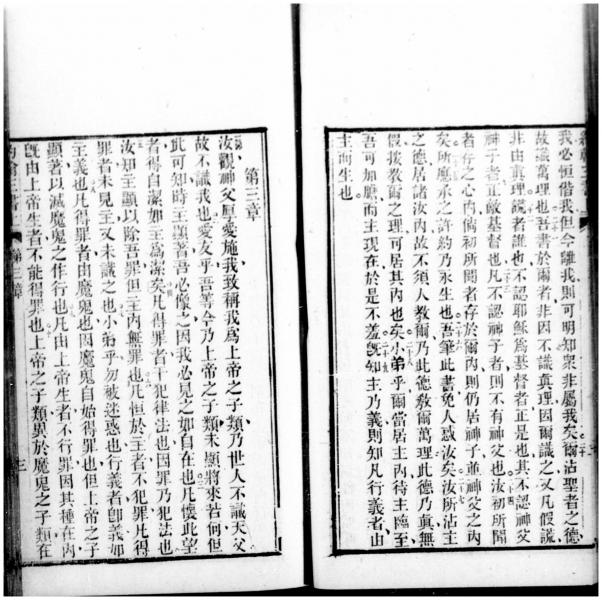 我必恒偕我但今離我則可明知衆非屬我矣爾沾聖者之德
故識萬理也吾書於爾者非因不識眞理因爾識之又凡假謊
非由眞理謊者誰也不認耶穌爲基督者正是也其不認神父
神子者正敵基督也凡不認神子者則不有神父也汝初所聞
者存之心內倘初所聞者存於爾內則仍居神子並神父之內
矣所應承之許約乃永生也吾筆此書免人惑汝矣汝所沾主
之德居諸汝內故不須人教爾乃此德敎爾萬理此德乃眞無
假援敎爾之理可居其內也矣小弟乎爾當居主內待主臨至
吾可如膽而主現在於是不羞旣知主乃義則知凡行義者由
主而生也
第三章
汝觀神父叵愛施我致稱我爲上帝之子類乃世人不識天父
故不識我也愛友乎吾等今乃上帝之子類未顯將來若何但
此可知時主顯著吾必像之因我必見之如自在也凡懷此望
者得自潔如主爲潔矣凡得罪者干犯律法也因罪乃犯法也
汝知主顯以除吾罪但主內無罪也凡恒於主者不犯罪凡得
罪者未見主又未識之也小弟乎勿被迷惑也行義者卽義如
主義也凡得罪者由魔鬼也因魔鬼自始得罪也但上帝之子
顯著以滅魔鬼之作行也凡由上帝生者不行罪因其種在內
旣由上帝生者不能得罪也上帝之子類異於魔鬼之子類在
第三章
三